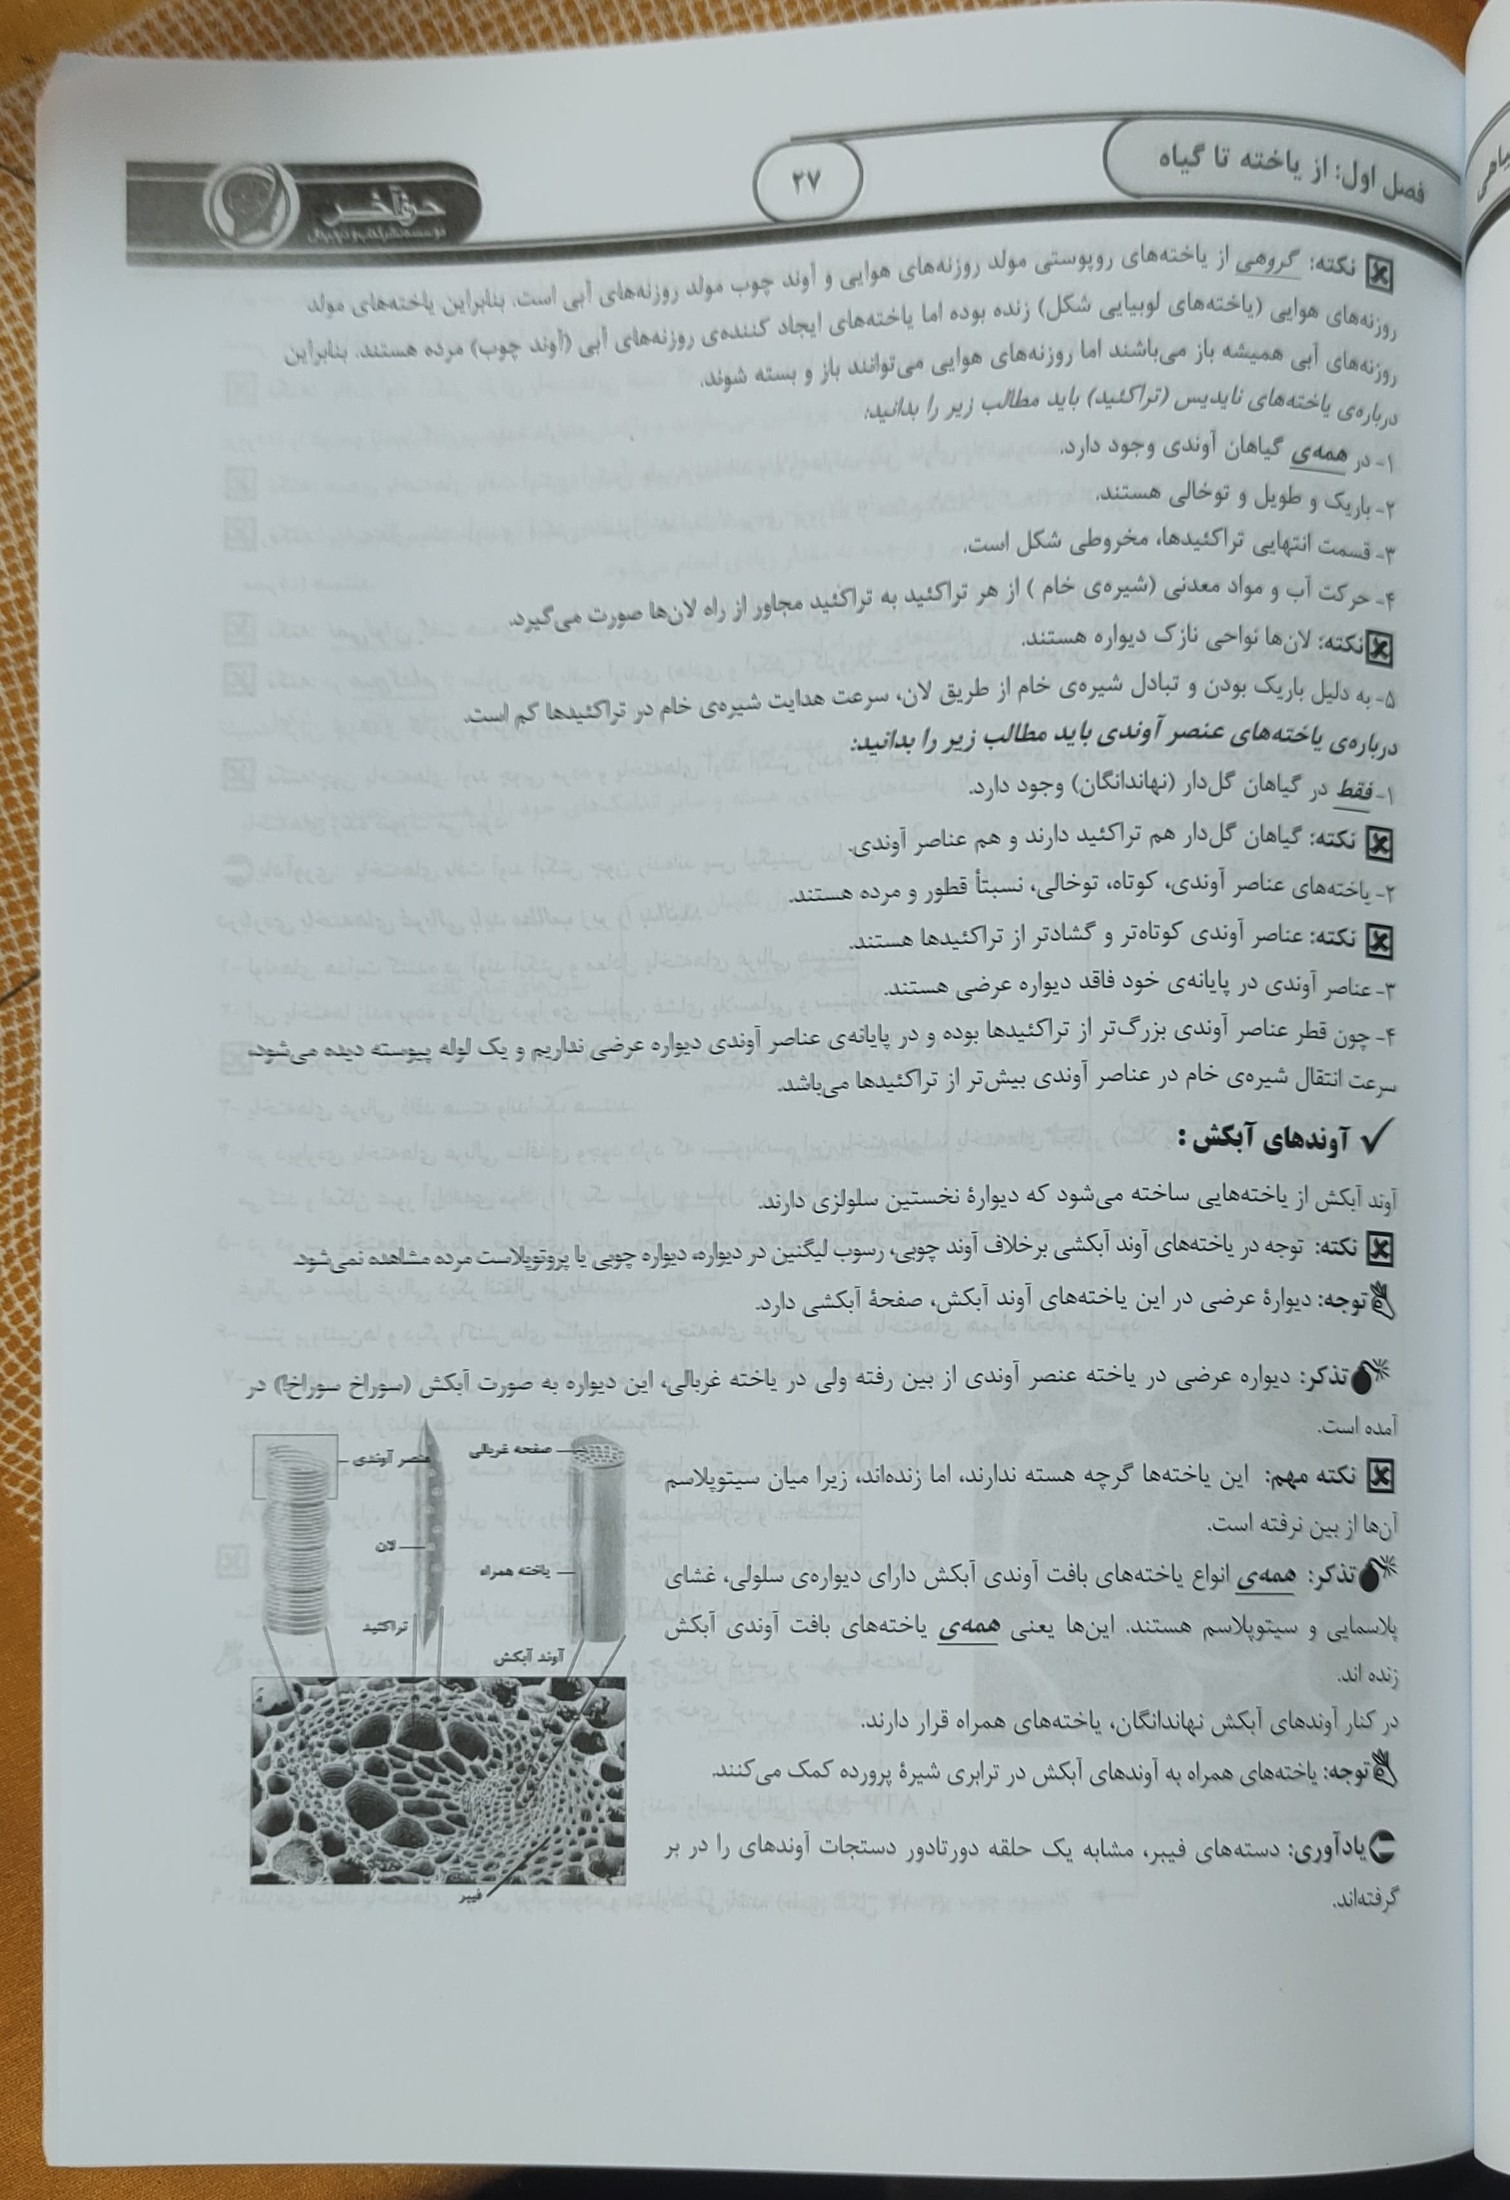 فصل اول: از یاخته تا گیاه
۲۷
حرف آخر
نکته: گروهی از یاخته‌های روپوستی مولد روزنه‌های هوایی و آوند چوب مولد روزنه‌های آبی است. بنابراین یاخته‌های مولد
روزنه‌های هوایی (یاخته‌های لوبیایی شکل) زنده بوده اما یاخته‌های ایجاد کننده‌ی روزنه‌های آبی (آوند چوب) مرده هستند. بنابراین
روزنه‌های آبی همیشه باز می‌باشند اما روزنه‌های هوایی می‌توانند باز و بسته شوند.
درباره‌ی یاخته‌های نایدیس (تراکئید) باید مطالب زیر را بدانید:
۱- در همه‌ی گیاهان آوندی وجود دارد.
۲- باریک و طویل و توخالی هستند.
۳- قسمت انتهایی تراکئیدها، مخروطی شکل است.
۴- حرکت آب و مواد معدنی (شیره‌ی خام ) از هر تراکئید به تراکئید مجاور از راه لان‌ها صورت می‌گیرد.
نکته: لان‌ها نواحی نازک دیواره هستند.
۵- به دلیل باریک بودن و تبادل شیره‌ی خام از طریق لان، سرعت هدایت شیره‌ی خام در تراکئیدها کم است.
درباره‌ی یاخته‌های عنصر آوندی باید مطالب زیر را بدانید:
۱- فقط در گیاهان گل‌دار (نهاندانگان) وجود دارد.
نکته: گیاهان گل‌دار هم تراکئید دارند و هم عناصر آوندی.
۲- یاخته‌های عناصر آوندی، کوتاه، توخالی، نسبتأ قطور و مرده هستند.
نکته: عناصر آوندی کوتاه‌تر و گشادتر از تراکئیدها هستند.
۳- عناصر آوندی در پایانه‌ی خود فاقد دیواره عرضی هستند.
۴- چون قطر عناصر آوندی بزرگ‌تر از تراکئیدها بوده و در پایانه‌ی عناصر آوندی دیواره عرضی نداریم و یک لوله پیوسته دیده می‌شود،
سرعت انتقال شیره‌ی خام در عناصر آوندی بیش‌تر از تراکئیدها می‌باشد.
✓ آوندهای آبکش :
آوند آبکش از یاخته‌هایی ساخته می‌شود که دیوارهٔ نخستین سلولزی دارند.
نکته: توجه در یاخته‌های آوند آبکشی برخلاف آوند چوبی، رسوب لیگنین در دیواره، دیواره چوبی یا پروتوپلاست مرده مشاهده نمی‌شود.
توجه: دیوارهٔ عرضی در این یاخته‌های آوند آبکش، صفحهٔ آبکشی دارد.
تذکر: دیواره عرضی در یاخته عنصر آوندی از بین رفته ولی در یاخته غربالی، این دیواره به صورت آبکش (سوراخ سوراخ!) در
آمده است.
نکته مهم: این یاخته‌ها گرچه هسته ندارند، اما زنده‌اند، زیرا میان سیتوپلاسم
آن‌ها از بین نرفته است.
تذکر: همه‌ی انواع یاخته‌های بافت آوندی آبکش دارای دیواره‌ی سلولی، غشای
پلاسمایی و سیتوپلاسم هستند. این‌ها یعنی همه‌ی یاخته‌های بافت آوندی آبکش
زنده اند.
در کنار آوندهای آبکش نهاندانگان، یاخته‌های همراه قرار دارند.
توجه: یاخته‌های همراه به آوندهای آبکش در ترابری شیرهٔ پرورده کمک می‌کنند.
یادآوری: دسته‌های فیبر، مشابه یک حلقه دورتادور دستجات آوندهای را در بر
گرفته‌اند.
صفحه غربالی
عنصر آوندی
لان
یاخته همراه
تراکئید
آوند آبکش
فیبر